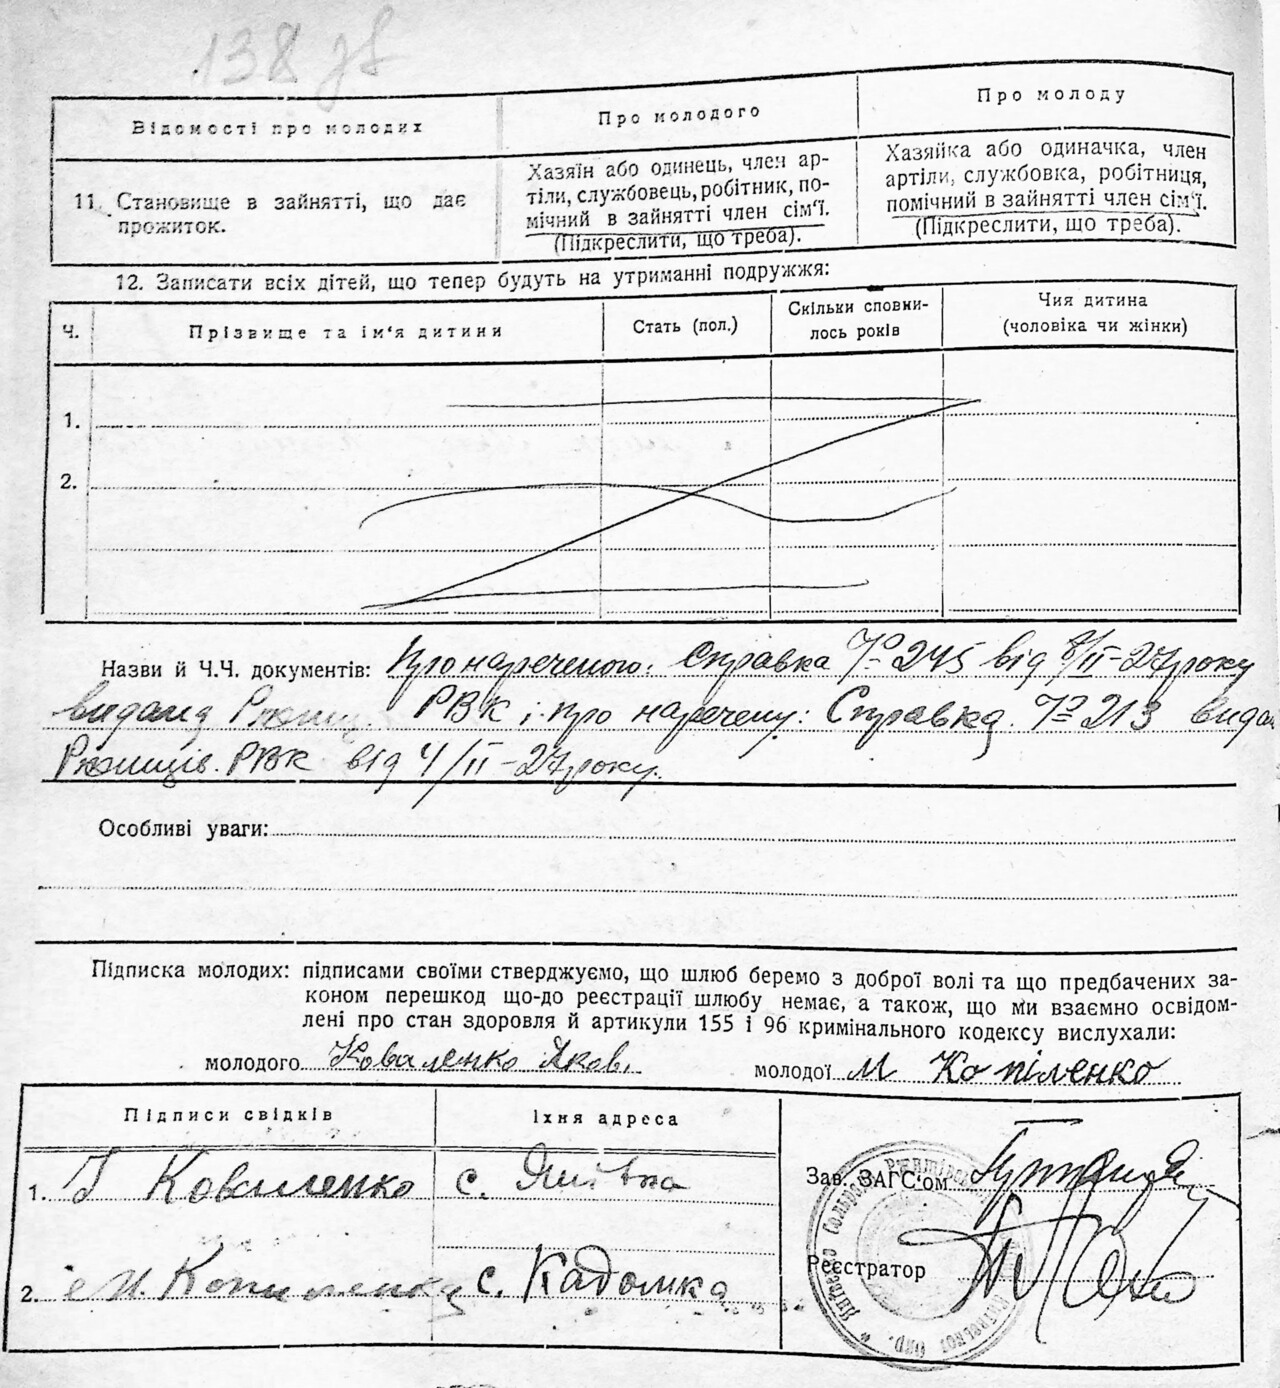 138 зв
Відомості про молодих
Про молодого
Про молоду
11. Становище в зайнятті, що дає
прожиток.
Хазяїн або одинець, член ар-
тіли, службовець, робітник, по-
мічний в зайнятті член сім'ї.
(Підкреслити, що треба).
Хазяйка або одиначка, член
артіли, службовка, робітниця,
помічний в зайнятті член сім'ї.
(Підкреслити, що треба).
12. Записати всіх дітей, що тепер будуть на утриманні подружжя:
Ч.
Прізвище та ім'я дитини
Стать (пол.)
Скільки сповни-
лось років
Чия дитина
(чоловіка чи жінки)
1.
2.
Назви й Ч.Ч. документів: Про нареченого: Справка № 245 від 8/ІІ-27 року
видана РВК і про наречену: Справка № 213 вида
РВК від 4/ІІ-27 року.
Особливі уваги:
Підписка молодих: підписами своїми стверджуємо, що шлюб беремо з доброї волі та що предбачених за-
коном перешкод що-до реєстрації шлюбу немає, а також, що ми взаємно освідом-
лені про стан здоровля й артикули 155 і 96 кримінального кодексу вислухали:
молодого Коваленко Яков.
молодої М Копіленко
Підписи свідків
Їхня адреса
1. Коваленко
с.
2. Копиленко
с. Кадомка
Зав. ЗАГС'ом
Реєстратор